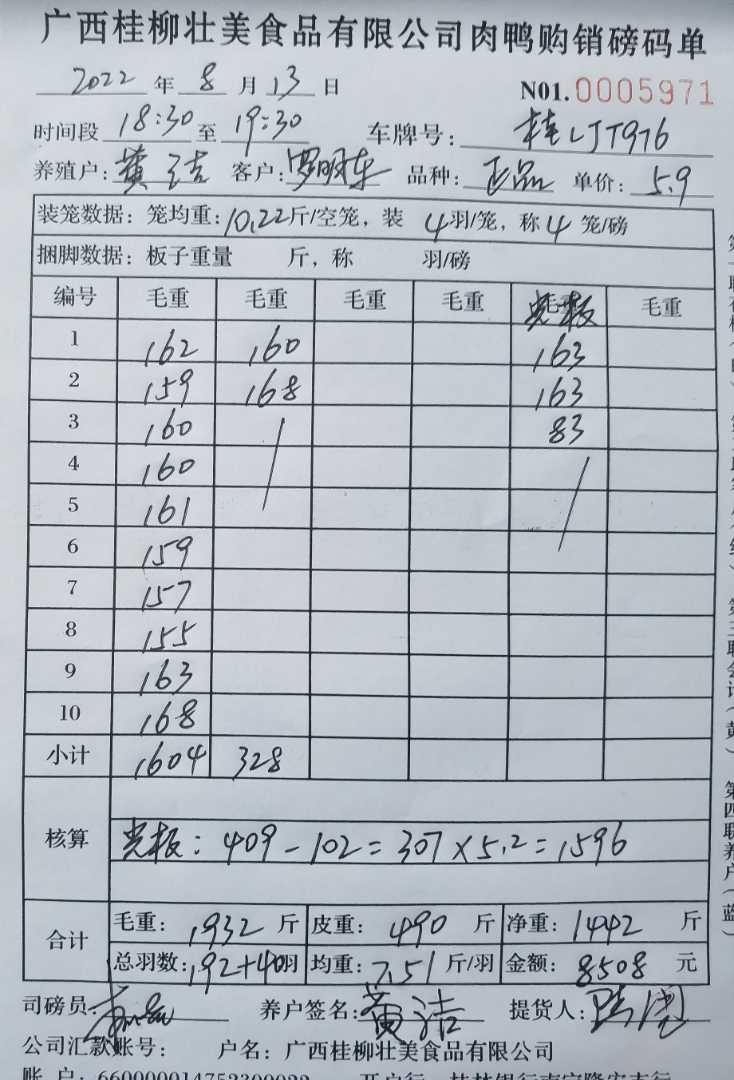 广西桂柳壮美食品有限公司肉鸭购销磅码单
2022 年 8 月 13 日 N01.0005971
时间段 18:30 至 19:30 车牌号: 桂LJT976
养殖户: 黄洁 客户: 罗明东 品种: 正品 单价: 5.9
装笼数据: 笼均重: 10.22 斤/空笼, 装 4 羽/笼, 称 4 笼/磅
捆脚数据: 板子重量 斤, 称 羽/磅
编号 毛重 毛重 毛重 毛重 光板 毛重
1 162 160 163
2 159 168 163
3 160 83
4 160
5 161
6 159
7 157
8 155
9 163
10 168
小计 1604 328
核算 光板: 409-102=307×5.2=1596
合计 毛重: 1932 斤 皮重: 490 斤 净重: 1442 斤
总羽数: 192+40羽 均重: 7.51 斤/羽 金额: 8508 元
司磅员: 养户签名: 黄洁 提货人:
公司汇款账号: 户名: 广西桂柳壮美食品有限公司